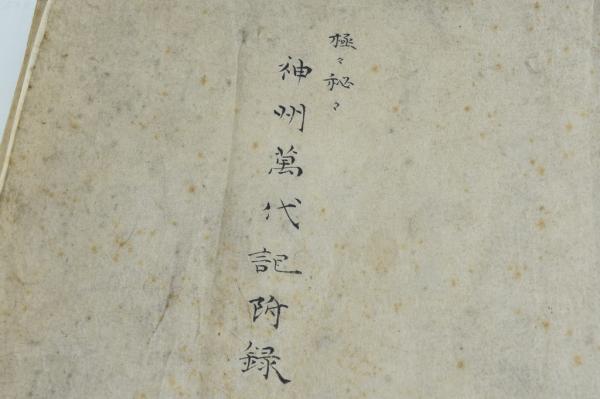 極々秘々
神州萬代記附録